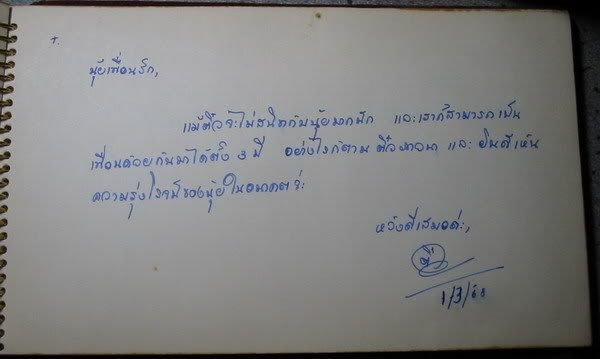 +.
นุ้ยเพื่อนรัก,
แม้ติ๋วจะไม่สนิทกับนุ้ยมากนัก และเราก็สามารถเป็น
เพื่อนด้วยกันมาได้ตั้ง 3 ปี อย่างไรก็ตาม ติ๋ว และ ยินดีเห็น
ความรุ่งโรจน์ของนุ้ยในอนาคตจ้ะ
หวังดีเสมอค่ะ,
ติ๋ว
1/3/